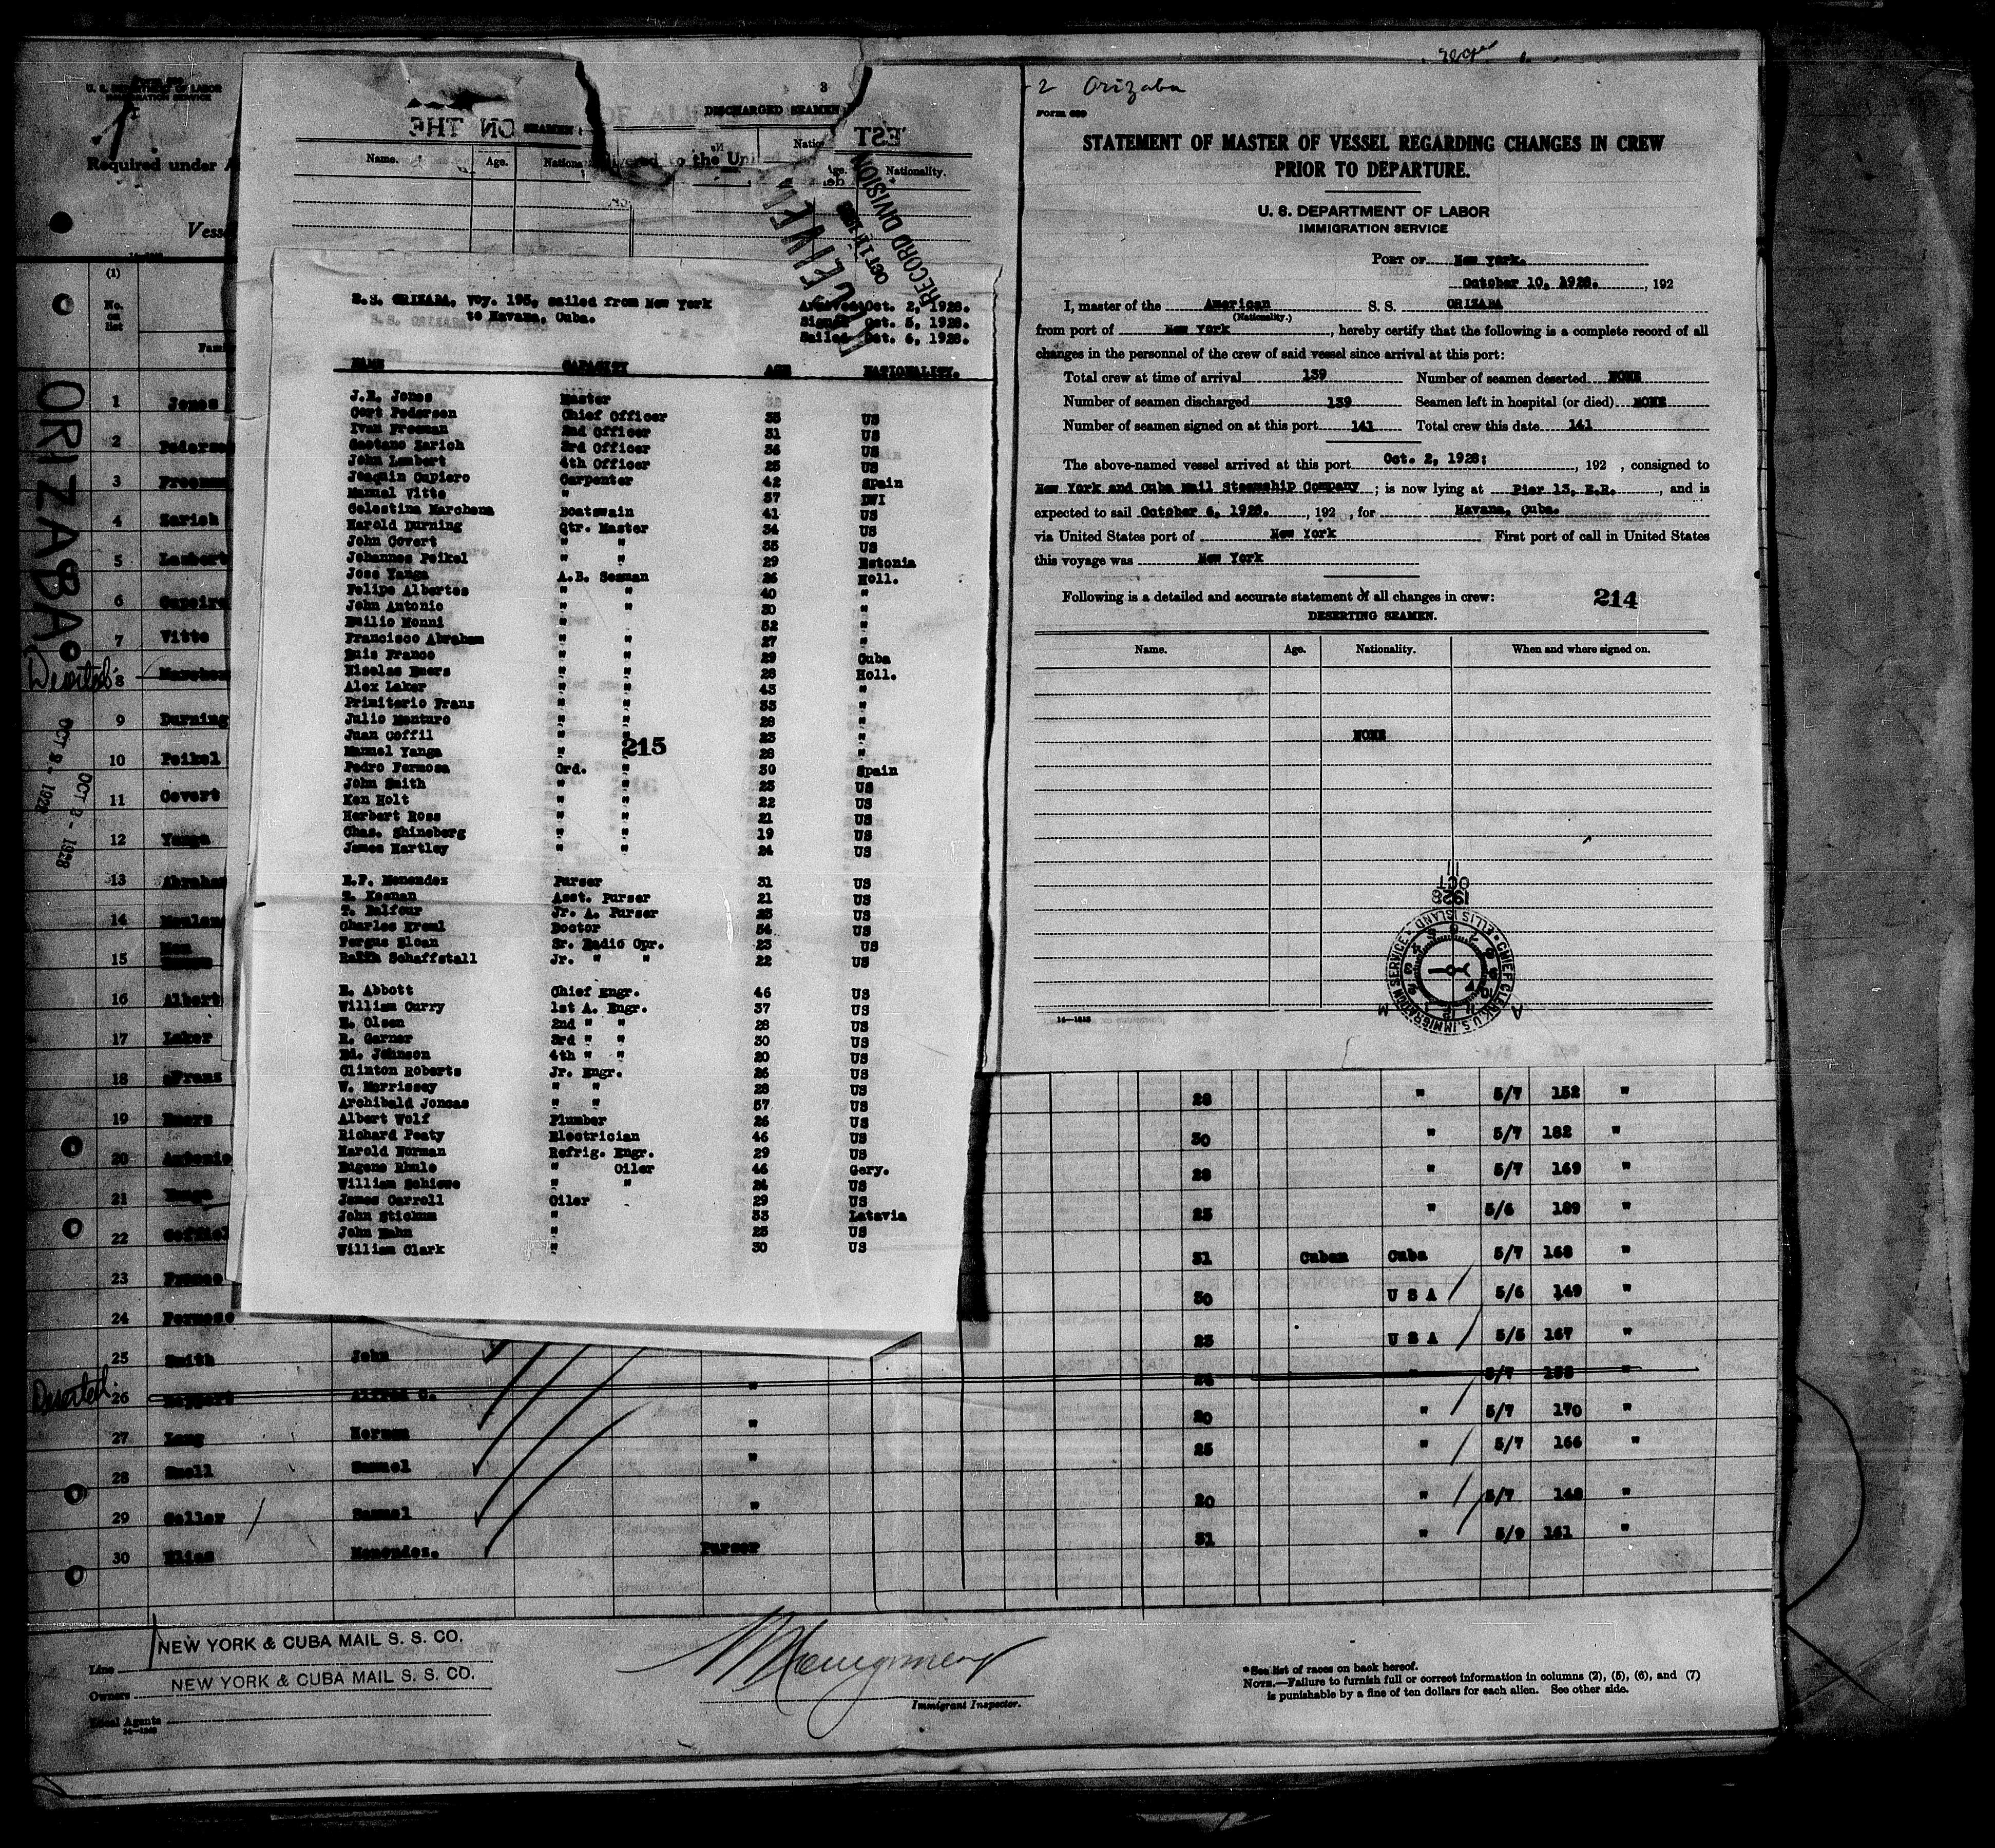 Form 689
U. S. DEPARTMENT OF LABOR
IMMIGRATION SERVICE
Required under A
Vess
(1)
No.
on
list
Fam
ORIZABA
1 Jones
2 Pederse
3 Freeman
4 Zarich
5 Lambert
6
7 Vitte
8
9 Durning
10 Peikel
11 Covert
12 Yanga
13 Abraha
14
15
16 Albert
17 Laker
18 Franz
19
20 Antonio
21
22
23 Franco
24 Formoso
25 Smith John
Deserted
26 Alfred C. "
27 Long Herman "
28 Snell Samuel "
29 Geller Samuel "
30 Elias Menendez. Purser
OCT 2 - 1928
OCT 2 - 1928
3
DISCHARGED SEAMEN
ON THE
SEAMEN
Name. Age. Nationa
vered to the Uni
Nationality.
RECEIVED
OCT 11 1928
RECORD DIVISION
S.S. ORIZABA, Voy. 195, sailed from New York
to Havana, Cuba.
Arrived Oct. 2, 1928.
Signed Oct. 5, 1928.
Sailed Oct. 6, 1928.
NAME CAPACITY AGE NATIONALITY.
J.E. Jones Master
Gert Pedersen Chief Officer 33 US
Ivan Freeman 2nd Officer 31 US
Gaetano Zarich 3rd Officer 34 US
John Lambert 4th Officer 25 US
Joaquin Capiero Carpenter 42 Spain
Manuel Vitte " 37 DWI
Celestina Marchena Boatswain 41 US
Harold Durning Qtr. Master 34 US
John Covert " " 35 US
Johannes Peikel " " 29 Estonia
Jose Yanga A.B. Seaman 26 Holl.
Felipe Albertos " " 40 "
John Antonio " " 30 "
Emilio Monni " 52 "
Francisco Abraham " " 27 "
Luis Franco " " 29 Cuba
Nicolas Emers " " 28 Holl.
Alex Laker " " 43 "
Primiterio Franz " " 33 "
Julio Monturo " " 28 "
Juan Coffil " " 23 "
Manuel Yanga " " 28 "
215
Pedro Formosa Ord. " 30 Spain
John Smith " " 23 US
Ken Holt " " 22 US
Herbert Ross " " 21 US
Chas. Shineberg " " 19 US
James Hartley " " 24 US
E.F. Menendez Purser 31 US
S. Keenan Asst. Purser 21 US
T. Balfour Jr. A. Purser 25 US
Charles Kreml Doctor 54 US
Fergus Sloan Sr. Radio Opr. 23 US
Ralph Schaffstall Jr. " " 22 US
E. Abbott Chief Engr. 46 US
William Curry 1st A. Engr. 37 US
E. Olsen 2nd " " 28 US
R. Garner 3rd " " 30 US
Ed. Johnson 4th " " 20 US
Clinton Roberts Jr. Engr. 26 US
W. Morrissey " " 28 US
Archibald Joncas " " 57 US
Albert Wolf Plumber 26 US
Richard Peaty Electrician 46 US
Harold Norman Refrig. Engr. 29 US
Eugene Rhule " Oiler 46 Gery.
William Schiewe " " 24 US
James Carroll Oiler 29 US
John Stickum " 33 Latavia
John Hahn " 25 US
William Clark " 30 US
2 Orizaba
Form 689
STATEMENT OF MASTER OF VESSEL REGARDING CHANGES IN CREW
PRIOR TO DEPARTURE.
U. S. DEPARTMENT OF LABOR
IMMIGRATION SERVICE
PORT OF New York.
October 10, 1928. , 192
I, master of the American S. S. ORIZABA
(Nationality.)
from port of New York , hereby certify that the following is a complete record of all
changes in the personnel of the crew of said vessel since arrival at this port:
Total crew at time of arrival 139 Number of seamen deserted NONE
Number of seamen discharged 139 Seamen left in hospital (or died) NONE
Number of seamen signed on at this port 141 Total crew this date 141
The above-named vessel arrived at this port Oct. 2, 1928: , 192 , consigned to
New York and Cuba Mail Steamship Company ; is now lying at Pier 13, E.R. , and is
expected to sail October 6, 1928. , 192 , for Havana, Cuba.
via United States port of New York First port of call in United States
this voyage was New York
Following is a detailed and accurate statement of all changes in crew: 214
DESERTING SEAMEN.
Name. Age. Nationality. When and where signed on.
NONE
1928
OCT
11
CHIEF CLERK, U.S. IMMIGRATION SERVICE ELLIS ISLAND
14—1613
28 " 5/7 152 "
30 " 5/7 182 "
28 " 5/7 169 "
23 " 5/6 189 "
31 Cuban Cuba 5/7 168 "
30 U S A 5/6 149 "
23 U S A 5/5 167 "
" 5/7 "
20 " 5/7 170 "
25 " 5/7 166 "
20 " 5/7 148 "
31 " 5/9 161 "
Line NEW YORK & CUBA MAIL S. S. CO.
Owners NEW YORK & CUBA MAIL S. S. CO.
Local Agents
Immigrant Inspector.
*See list of races on back hereof.
NOTE.—Failure to furnish full or correct information in columns (2), (5), (6), and (7)
is punishable by a fine of ten dollars for each alien. See other side.